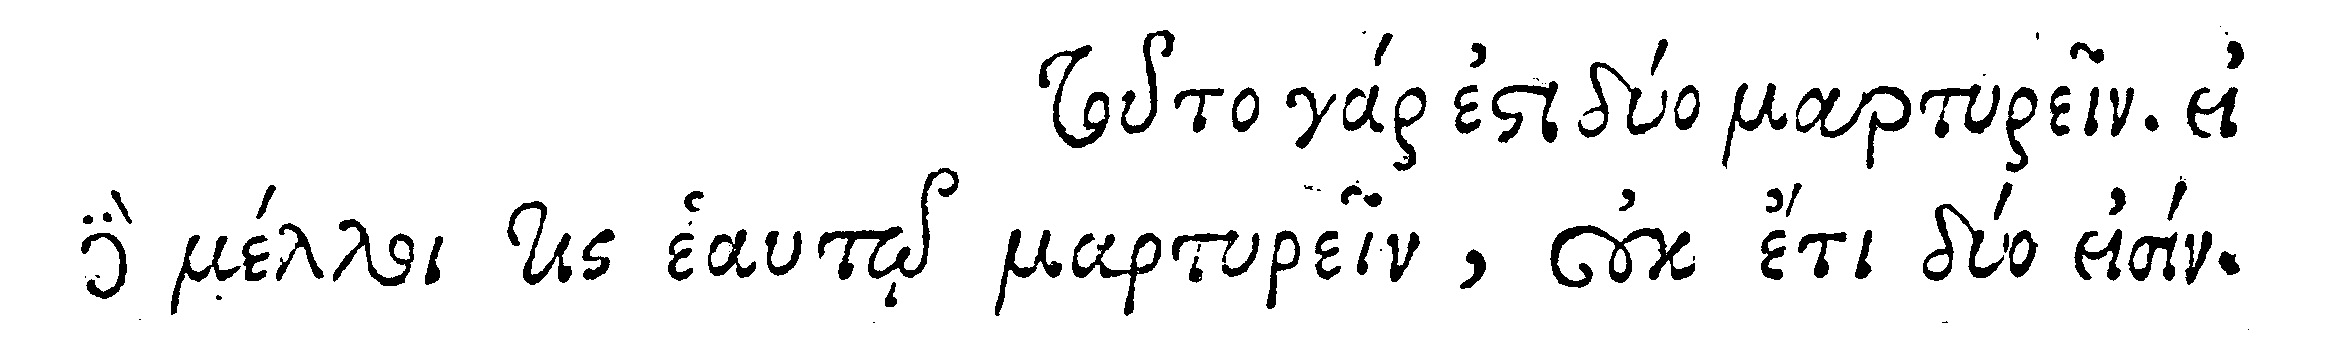 τοῦτο γάρ ἐστι δύο μαρτυρεῖν. εἰ
δὲ μέλλοι τις ἑαυτῷ μαρτυρεῖν, οὐκ ἔτι δύο εἰσίν.